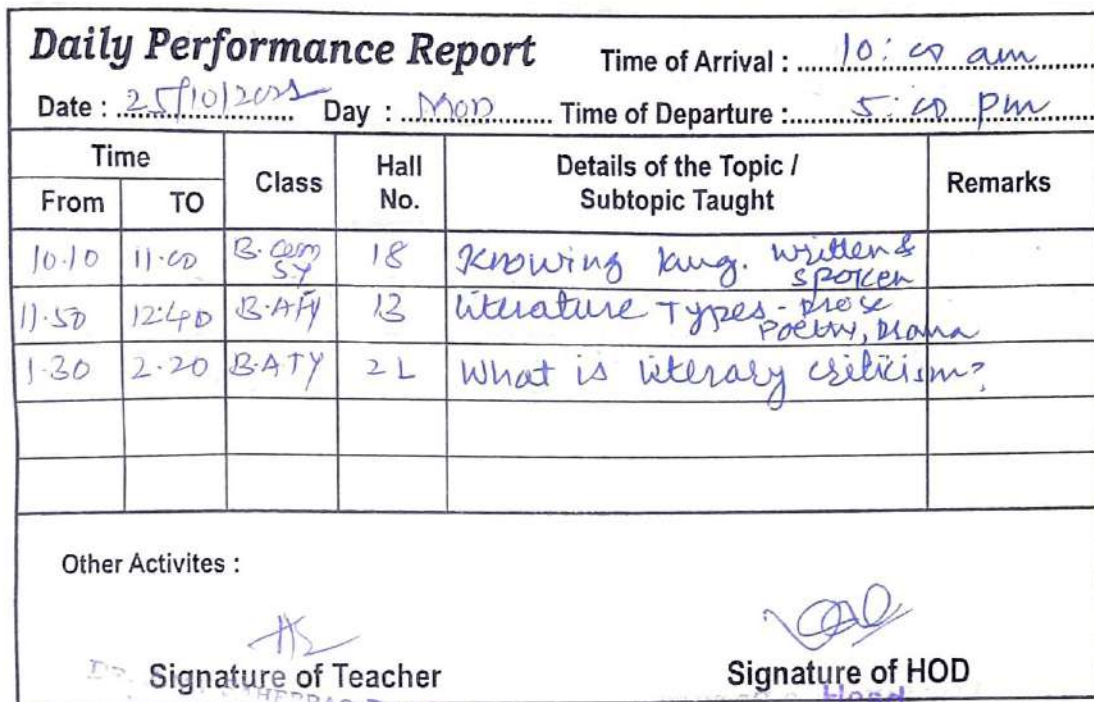 Daily Performance Report Time of Arrival : 10:00 am
Date : 25/10/2021 Day : Mon Time of Departure : 5:00 pm
Time Class Hall No. Details of the Topic / Subtopic Taught Remarks
From TO
10.10 11.00 B.Com SY 18 Knowing Lang. written & spoken
11.50 12.40 B.A FY 13 Literature Types - Prose Poetry, Drama
1.30 2.20 B.A TY 21 What is literary criticism?
Other Activites :
Signature of Teacher Signature of HOD
Head